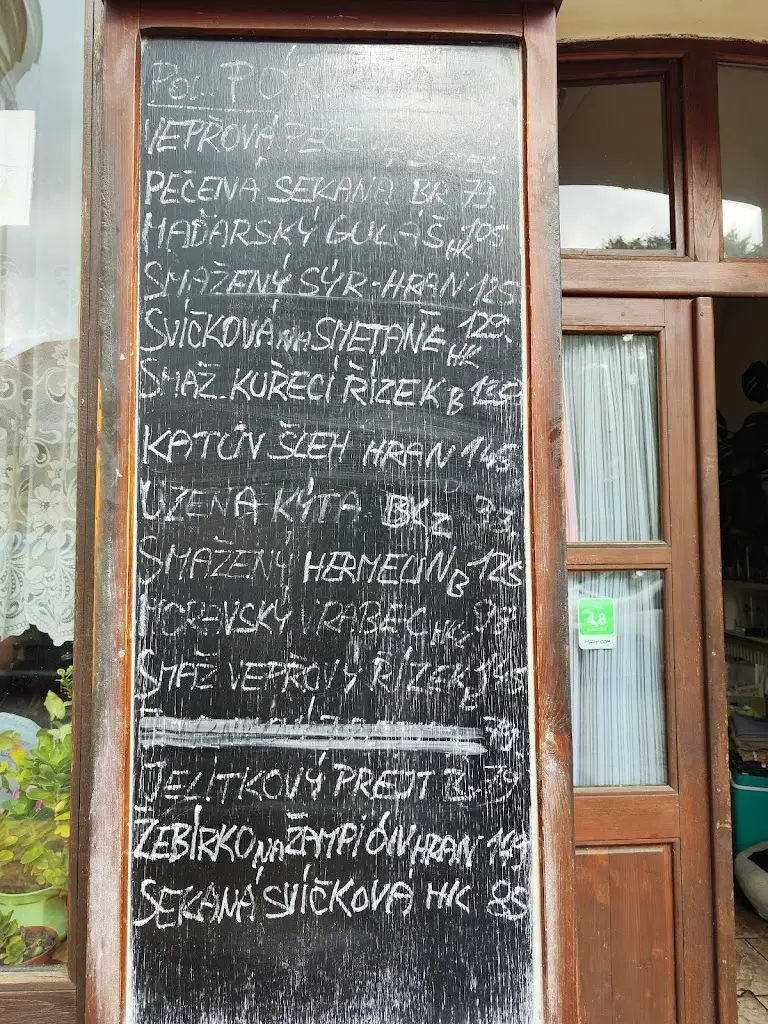 POL.
VEPŘOVÁ PEČENĚ
PEČENÁ SEKANÁ BR 79
MAĎARSKÝ GULÁŠ HK 105
SMAŽENÝ SÝR-HRAN 125
SVÍČKOVÁ NA SMETANĚ HK 129
SMAŽ. KUŘECÍ ŘÍZEK B 135
KATŮV ŠLEH HRAN 145
UZENÁ KÝTA BKZ 93
SMAŽENÝ HERMELÍN B 125
MORAVSKÝ VRABEC HKZ 98
SMAŽ VEPŘOVÝ ŘÍZEK B 145
79
JELÍTKOVÝ PREJT BZ 79
ŽEBÍRKO NA ŽAMPIÓN HRAN 149
SEKANÁ SVÍČKOVÁ HK 85
4,8